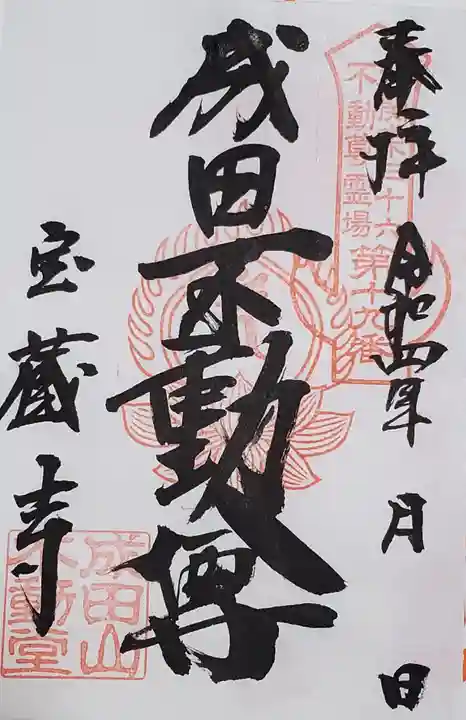 奉拝 令和四年 月 日
三十六
不動尊霊場
第十九番
成田不動尊
宝蔵寺
成田山
不動堂